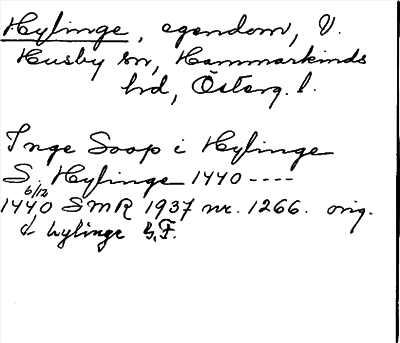 Hylinge, egendom, V.
Husby sn, Hammarkinds
hd, Österg. l.
Inge Soop i Hylinge
S. Hylinge 1440 ----
6/12
1440 SMR 1937 nr. 1266. orig.
d hylinge